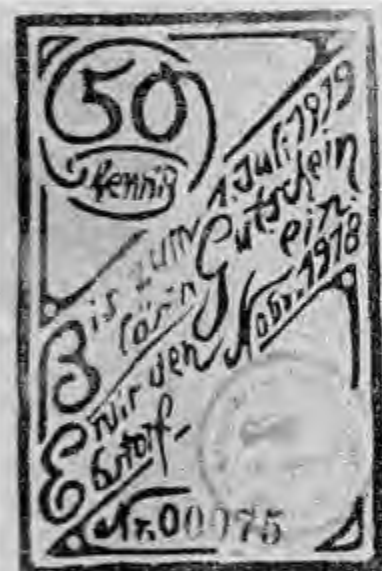 50
Pfennig
Bis zum 1. Juli 1919
lösen
wir den Gutschein
ein.
Ebstorf - Nobr. 1918
Nr. 00075